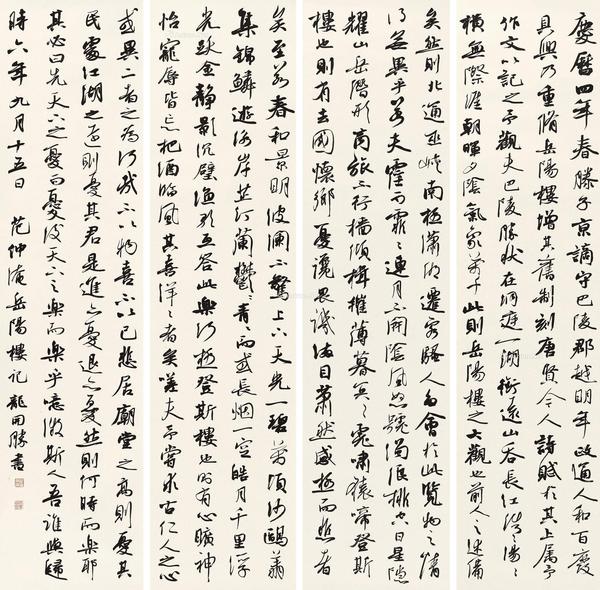 慶曆四年春滕子京謫守巴陵郡越明年政通人和百廢
具興乃重脩岳陽樓增其舊制刻唐賢今人詩賦於其上屬予
作文以記之予觀夫巴陵勝狀在洞庭一湖銜遠山吞長江浩〻湯〻
橫無際涯朝暉夕陰氣象萬千此則岳陽樓之大觀也前人之述備
矣然則北通巫峽南極瀟湘遷客騷人多會於此覽物之情
得無異乎若夫霪雨霏〻連月不開陰風怒號濁浪排空日星隱
耀山岳潛形商旅不行檣傾楫摧薄暮冥〻虎嘯猿啼登斯
樓也則有去國懷鄉憂讒畏譏滿目蕭然感極而悲者
矣至若春和景明波瀾不驚上下天光一碧萬頃沙鷗翔
集錦鱗遊泳岸芷汀蘭鬱〻青〻而或長烟一空皓月千里浮
光跃金靜影沉璧漁歌互答此樂何極登斯樓也則有心曠神
怡寵辱皆忘把酒臨風其喜洋〻者矣嗟夫予嘗求古仁人之心
或異二者之為何哉不以物喜不以己悲居廟堂之高則憂其
民處江湖之遠則憂其君是進亦憂退亦憂然則何時而樂耶
其必曰先天下之憂而憂後天下之樂而樂乎噫微斯人吾誰與歸
時六年九月十五日 范仲淹岳陽樓記 龍開勝書